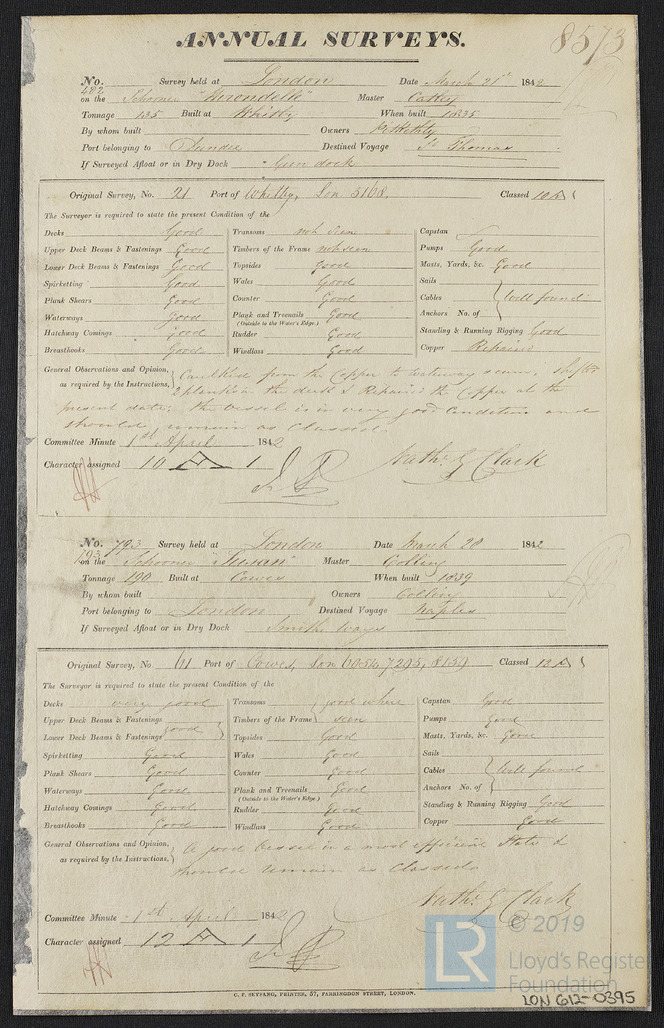 ANNUAL SURVEYS.
8573
No. 482 Survey held at London Date March 21st 1842
on the Schooner "Hirondelle" Master
Tonnage 135 Built at Whitby When built 1835
By whom built Owners
Port belonging to Dundee Destined Voyage St Thomas
If Surveyed Afloat or in Dry Dock Gun dock
Original Survey, No. 21 Port of Whitby, Lon 5168. Classed 10 A
The Surveyor is required to state the present Condition of the
Decks Good Transoms wh Seen Capstan
Upper Deck Beams & Fastenings Good Timbers of the Frame wh seen Pumps Good
Lower Deck Beams & Fastenings Good Topsides good Masts, Yards, &c. Good
Spirketting Good Wales Good Sails
Plank Shears Good Counter Good Cables Well found
Waterways good Plank and Treenails Good Anchors No. of
(Outside to the Water's Edge.)
Hatchway Comings good Rudder Good Standing & Running Rigging Good
Breasthooks Good Windlass Good Copper Repaired
General Observations and Opinion, Caulked from the Copper to waterway seam, shifted
as required by the Instructions, 2 planks in the deck & Repaired the Copper at the
present date, the vessel is in very good Condition and
should remain as Classed.
Committee Minute 1st April 1842
Character assigned 10 A 1
Nathl G Clark
No. 793 Survey held at London Date March 28 1842
493
on the Schooner "Susan" Master Colling
Tonnage 190 Built at Cowes When built 1839
By whom built Owners Colling
Port belonging to London Destined Voyage Naples
If Surveyed Afloat or in Dry Dock Smiths Ways
Original Survey, No. 61 Port of Cowes, Lon 6054 7205, Classed 12 A
The Surveyor is required to state the present Condition of the
Decks very good Transoms good where Capstan Good
Upper Deck Beams & Fastenings good Timbers of the Frame seen Pumps Good
Lower Deck Beams & Fastenings Topsides Good Masts, Yards, &c. Good
Spirketting Good Wales Good Sails
Plank Shears Good Counter Good Cables Well found
Waterways Good Plank and Treenails Good Anchors No. of
(Outside to the Water's Edge.)
Hatchway Comings Good Rudder Good Standing & Running Rigging Good
Breasthooks Good Windlass Good Copper Good
General Observations and Opinion, A good vessel in a most efficient State &
as required by the Instructions, should remain as Classed
Nathl G Clark
Committee Minute 1st April 1842
Character assigned 12 A 1
LR © 2019
Lloyd's Register
Foundation
C. F. SEYFANG, PRINTER, 57, FARRINGDON STREET, LONDON.
LON 612-0395